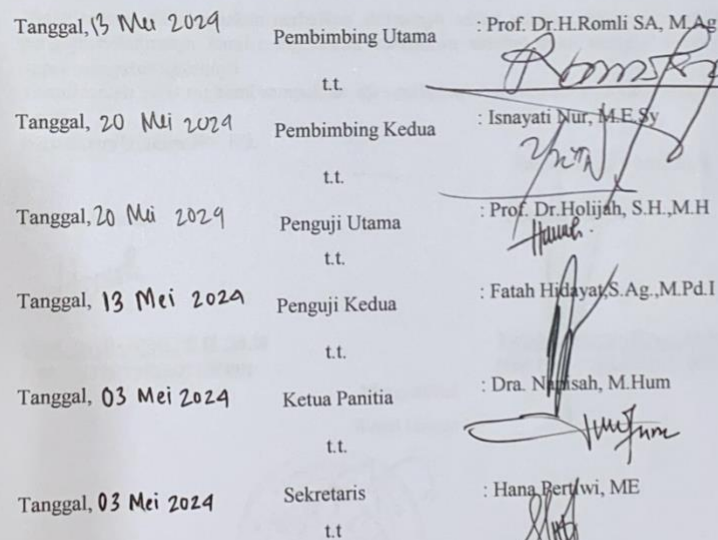 Tanggal, 13 Mei 2024 Pembimbing Utama : Prof. Dr.H.Romli SA, M.Ag
t.t.
Tanggal, 20 Mei 2024 Pembimbing Kedua : Isnayati Nur, M.E.Sy
t.t.
Tanggal, 20 Mei 2024 Penguji Utama : Prof. Dr.Holijah, S.H.,M.H
t.t.
Tanggal, 13 Mei 2024 Penguji Kedua : Fatah Hidayat,S.Ag.,M.Pd.I
t.t.
Tanggal, 03 Mei 2024 Ketua Panitia : Dra. Napisah, M.Hum
t.t.
Tanggal, 03 Mei 2024 Sekretaris : Hana Pertiwi, ME
t.t